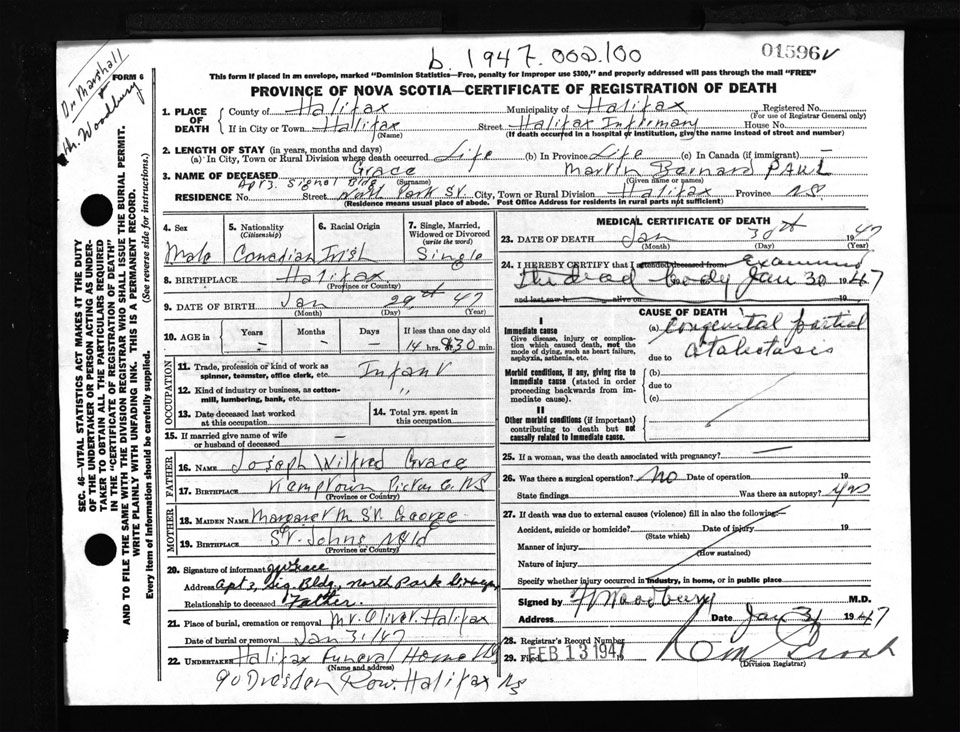 b. 1947.002.100
01596
Dr Marshall
H. Woodbury
FORM 6
This form if placed in an envelope, marked "Dominion Statistics—Free, penalty for improper use $300," and properly addressed will pass through the mail "FREE"
PROVINCE OF NOVA SCOTIA—CERTIFICATE OF REGISTRATION OF DEATH
1. PLACE OF DEATH County of Halifax Municipality of Halifax Registered No.
(For use of Registrar General only)
If in City or Town Halifax Street Halifax Infirmary House No.
(Name) (If death occurred in a hospital or institution, give the name instead of street and number)
2. LENGTH OF STAY (in years, months and days)
(a) In City, Town or Rural Division where death occurred Life (b) In Province Life (c) In Canada (if immigrant) —
3. NAME OF DECEASED Grace Martin Bernard PAUL
(Surname) (Given name or names)
RESIDENCE No. Apt 3. Signal Bldg Street North Park St. City, Town or Rural Division Halifax Province NS
(Residence means usual place of abode. Post Office Address for residents in rural parts not sufficient)
4. Sex 5. Nationality (Citizenship) 6. Racial Origin 7. Single, Married, Widowed or Divorced (write the word)
Male Canadian Irish Single
8. BIRTHPLACE Halifax
(Province or Country)
9. DATE OF BIRTH Jan 29 47
(Month) (Day) (Year)
10. AGE in Years Months Days If less than one day old
— — — 14 hrs. 30 min.
OCCUPATION
11. Trade, profession or kind of work as spinner, teamster, office clerk, etc. Infant
12. Kind of industry or business, as cotton-mill, lumbering, bank, etc. "
13. Date deceased last worked at this occupation
14. Total yrs. spent in this occupation
15. If married give name of wife or husband of deceased —
FATHER
16. NAME Joseph Wilfred Grace
17. BIRTHPLACE Kemptown Pictou Co. NS
(Province or Country)
MOTHER
18. MAIDEN NAME Margaret M. St. George
19. BIRTHPLACE St. Johns Nfld
(Province or Country)
20. Signature of informant JWGrace
Address Apt 3, Sig. Bldg, North Park St.
Relationship to deceased Father.
21. Place of burial, cremation or removal Mt. Olivet. Halifax
Date of burial or removal Jan 31/47
22. UNDERTAKER Halifax Funeral Home
(Name and address)
90 Dresden Row. Halifax NS
MEDICAL CERTIFICATE OF DEATH
23. DATE OF DEATH Jan 30th 1947
(Month) (Day) (Year)
24. I HEREBY CERTIFY that I attended deceased from Examined
the dead body Jan 30 1947
and last saw h alive on
CAUSE OF DEATH
I
Immediate cause
Give disease, injury or complication which caused death, not the mode of dying, such as heart failure, asphyxia, asthenia, etc.
(a) Congenital partial
due to Atalectasis
Morbid conditions, if any, giving rise to immediate cause (stated in order proceeding backwards from immediate cause).
(b)
due to
(c)
II
Other morbid conditions (if important) contributing to death but not causally related to immediate cause.
25. If a woman, was the death associated with pregnancy? —
26. Was there a surgical operation? No Date of operation 19
State findings Was there autopsy? yes
27. If death was due to external causes (violence) fill in also the following:
Accident, suicide or homicide? Date of injury 19
(State which)
Manner of injury
(How sustained)
Nature of injury
Specify whether injury occurred in industry, in home, or in public place
Signed by H Woodbury M.D.
Date Jan 31 1947
28. Registrar's Record Number
29. Filed FEB 13 1947
(Division Registrar)
SEC. 46—VITAL STATISTICS ACT MAKES IT THE DUTY
OF THE UNDERTAKER OR PERSON ACTING AS UNDER-
TAKER TO OBTAIN ALL THE PARTICULARS REQUIRED
IN THE "CERTIFICATE OF REGISTRATION OF DEATH"
AND TO FILE THE SAME WITH THE DIVISION REGISTRAR WHO SHALL ISSUE THE BURIAL PERMIT.
WRITE PLAINLY WITH UNFADING INK. THIS IS A PERMANENT RECORD.
Every item of information should be carefully supplied. (See reverse side for instructions.)